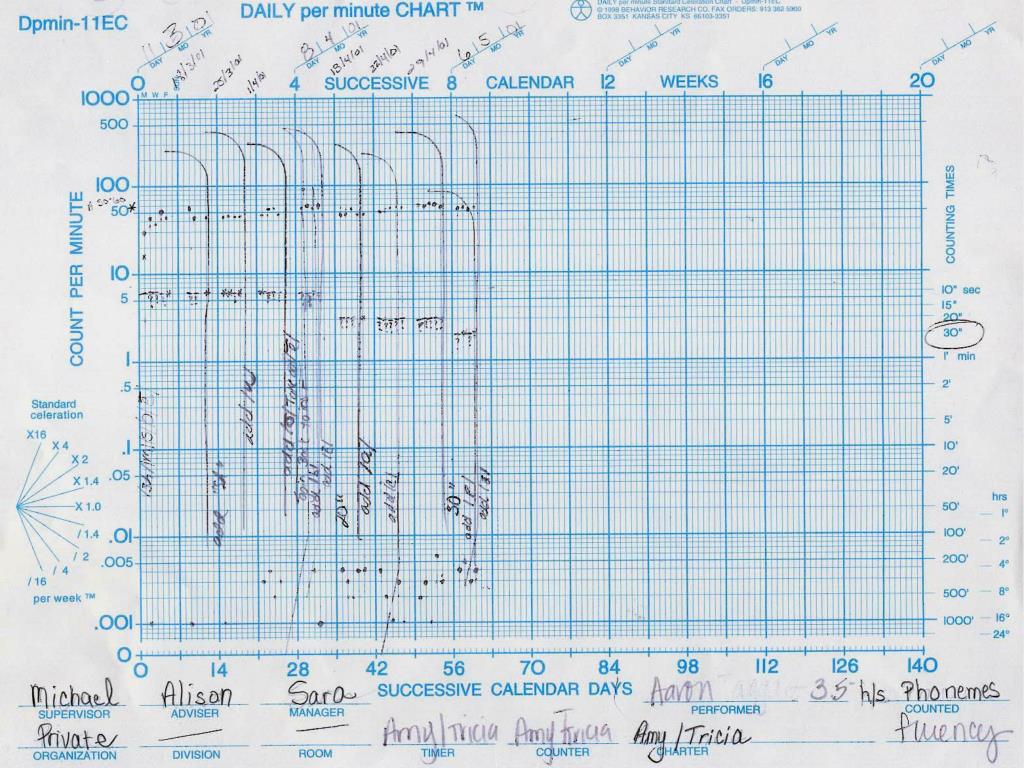 Dpmin-11EC
DAILY per minute CHART ™
DAILY per minute Standard Celeration Chart - Dpmin-11EC
© 1998 BEHAVIOR RESEARCH CO. FAX ORDERS: 913 362 5900
BOX 3351 KANSAS CITY KS 66103-3351
DAY MO YR
DAY MO YR
DAY MO YR
DAY MO YR
DAY MO YR
DAY MO YR
8 4 01
6 5 01
25/3/01
1/4/01
22/4/01
29/4/01
0 4 SUCCESSIVE 8 CALENDAR 12 WEEKS 16 20
M W F
1000
500
100
50
10
5
1
.5
.1
.05
.01
.005
.001
0
COUNT PER MINUTE
COUNTING TIMES
10" sec
15"
20"
30"
1' min
2'
5'
10'
20'
50'
100'
200'
500'
1000'
hrs
1°
2°
4°
8°
16°
24°
Standard
celeration
X16
X 4
X 2
X 1.4
X 1.0
/ 1.4
/ 2
/ 4
/ 16
per week ™
20"
30"
0 14 28 42 56 70 84 98 112 126 140
SUCCESSIVE CALENDAR DAYS
Michael Alison Sara Aaron 3.5 h/s Phonemes
SUPERVISOR ADVISER MANAGER PERFORMER COUNTED
Private Amy/Tricia Amy/Tricia Amy/Tricia fluency
ORGANIZATION DIVISION ROOM TIMER COUNTER CHARTER